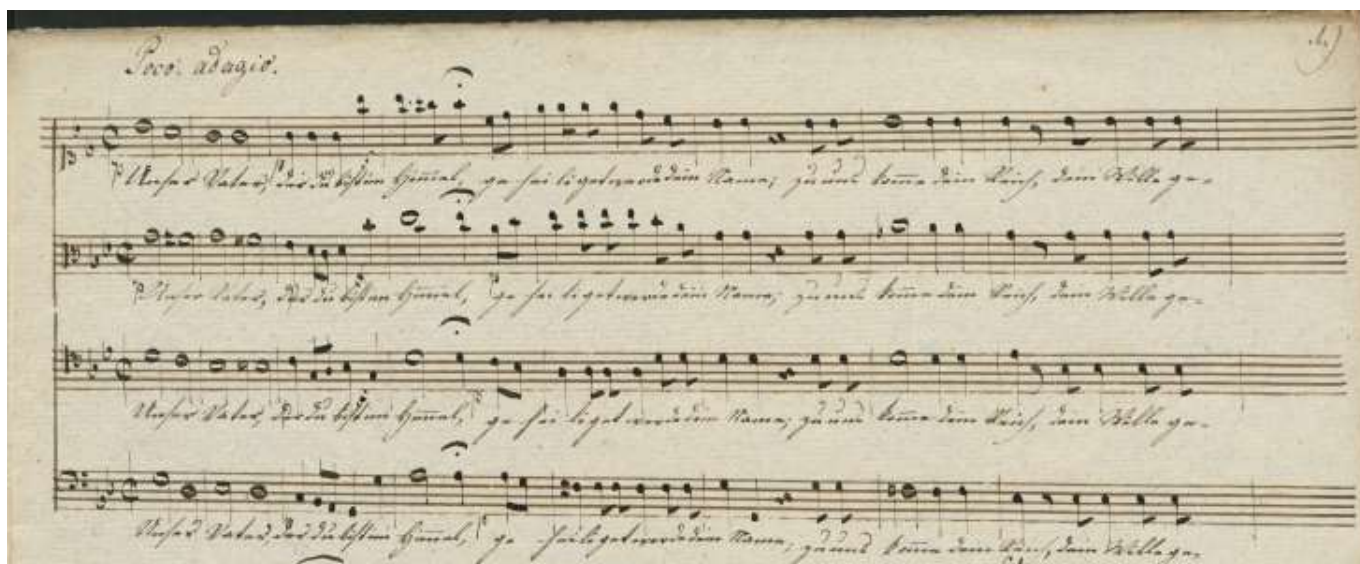 Poco adagio.
Unser Vater, der du bist im Himmel, geheiliget werde dein Name; zu uns komme dein Reich, dein Wille ge-
Unser Vater, der du bist im Himmel, geheiliget werde dein Name; zu uns komme dein Reich, dein Wille ge-
Unser Vater, der du bist im Himmel, geheiliget werde dein Name; zu uns komme dein Reich, dein Wille ge-
Unser Vater, der du bist im Himmel, geheiliget werde dein Name; zu uns komme dein Reich, dein Wille ge-